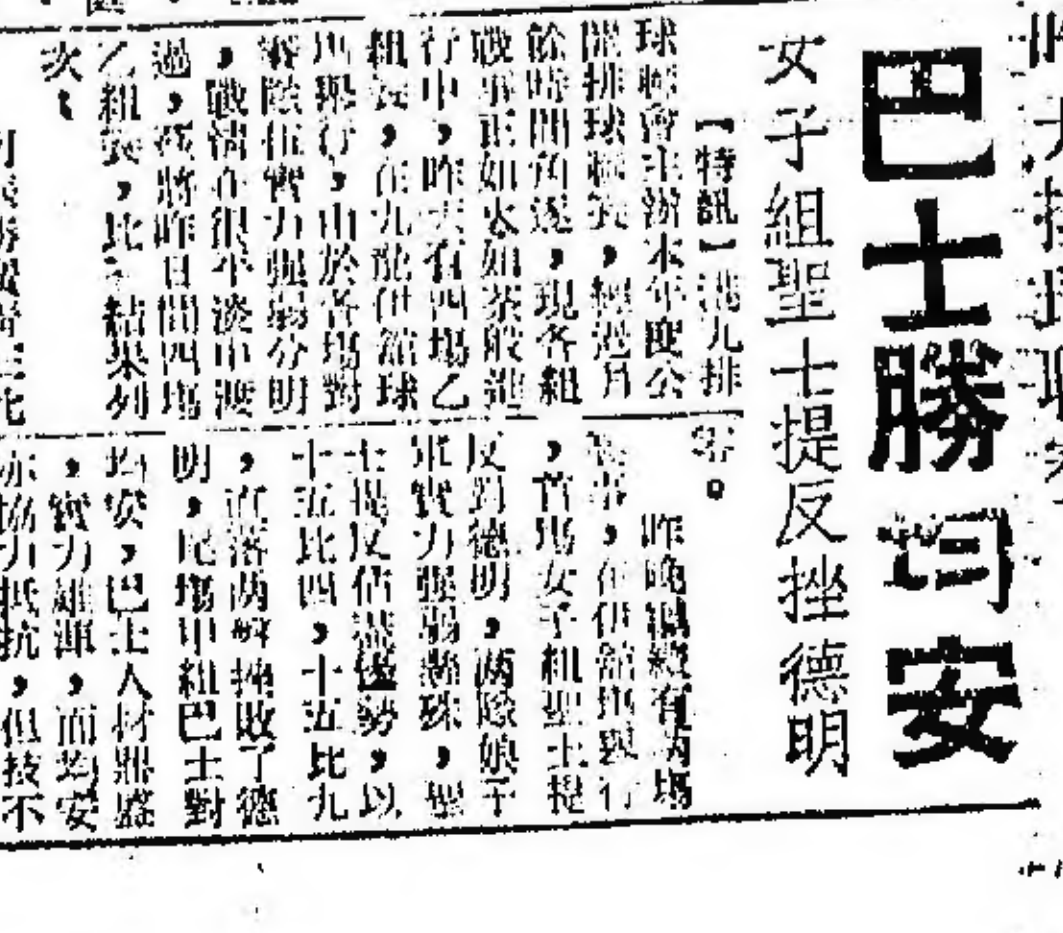 巴士勝均安
女子組聖士提反挫德明
【特訊】港九排
球總會主辦本年度公
開排球聯賽,經過月
餘時間角逐,現各組
戰事正如火如荼般進
行中,昨天有四場乙
組賽,在九龍伊舘球
塲舉行,由於各塲對
賽隊伍實力強弱分明
,戰情在很平淡中渡
過,茲將昨日間四塲
乙組賽,比結果列
次:
零。
昨晚繼續有兩塲
賽事,在伊舘塲舉行
,首塲女子組聖士提
反對德明,兩隊娘子
軍實力強弱懸殊,聖
士提反佔盡優勢,以
十五比四,十五比九
,直落两局擊敗了德
明,尾塲甲組巴士對
均安,巴士人材鼎盛
,實力雄渾,而均安
亦協力抵抗,但技不